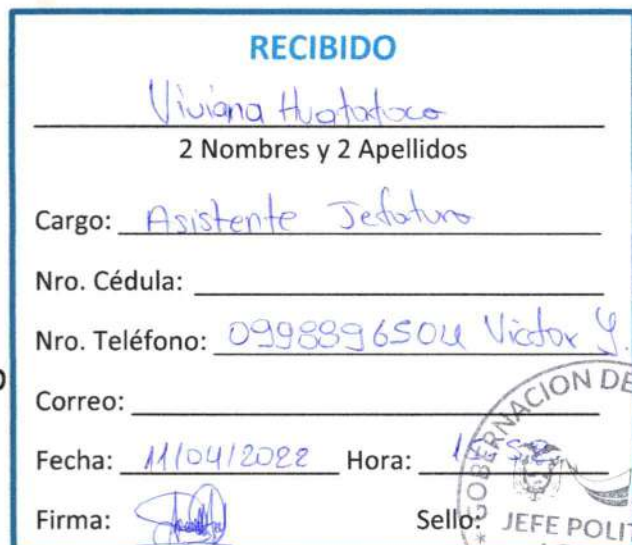 RECIBIDO
Viviana Huatatoca
2 Nombres y 2 Apellidos
Cargo: Asistente Jefatura
Nro. Cédula:
Nro. Teléfono: 0998896504 Victor Y.
Correo:
Fecha: 11/04/2022 Hora:
Firma: Sello:
GOBERNACION DE
JEFE POLIT